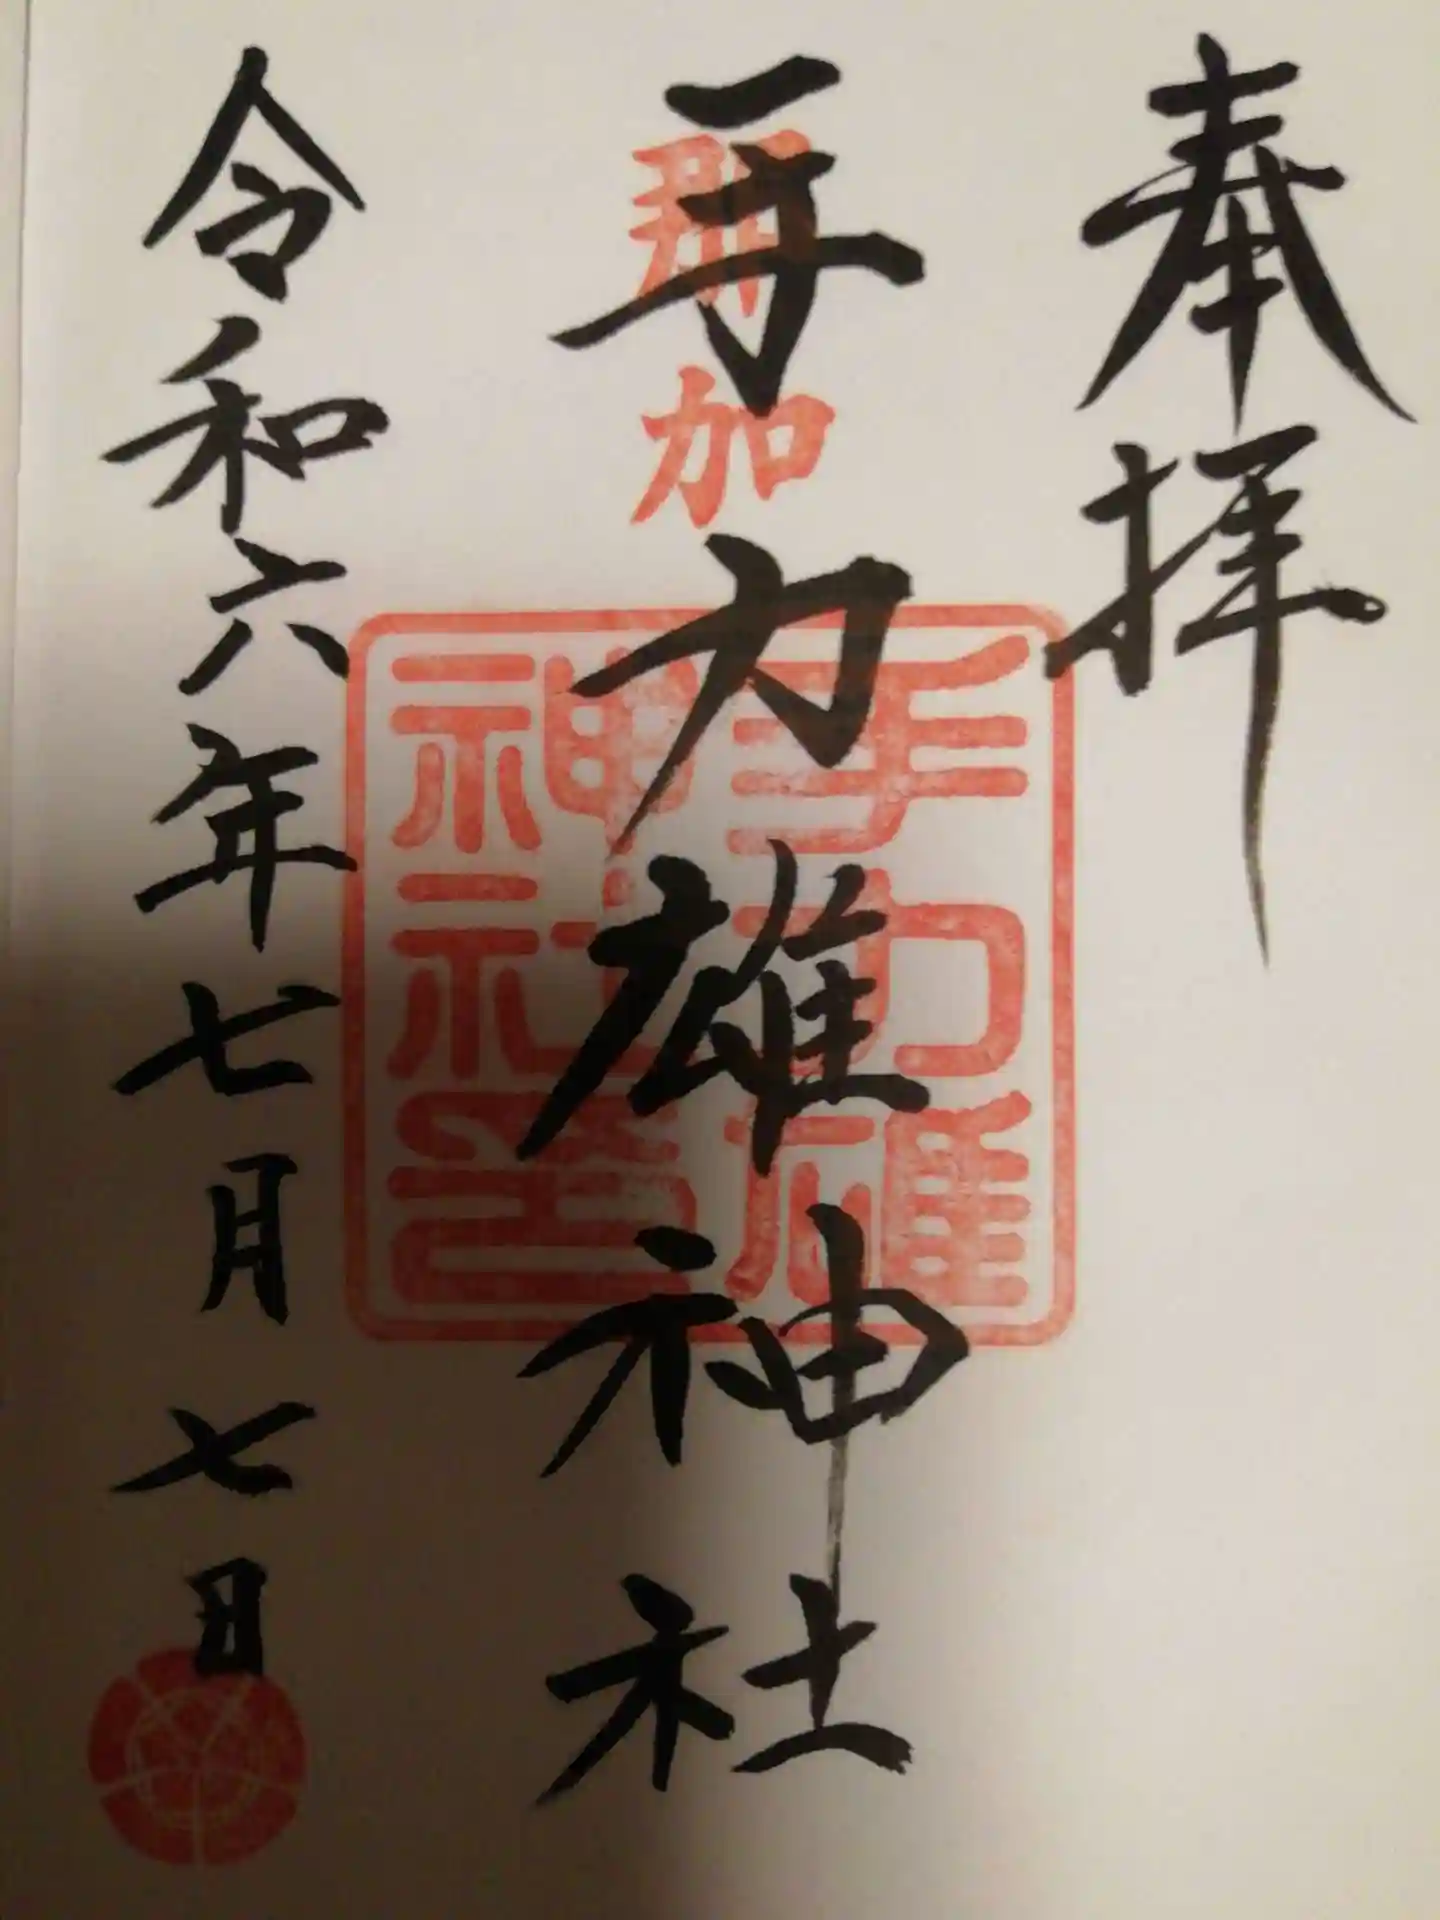 奉拝
手力雄神社
那加
手力雄
神社印
令和六年七月七日